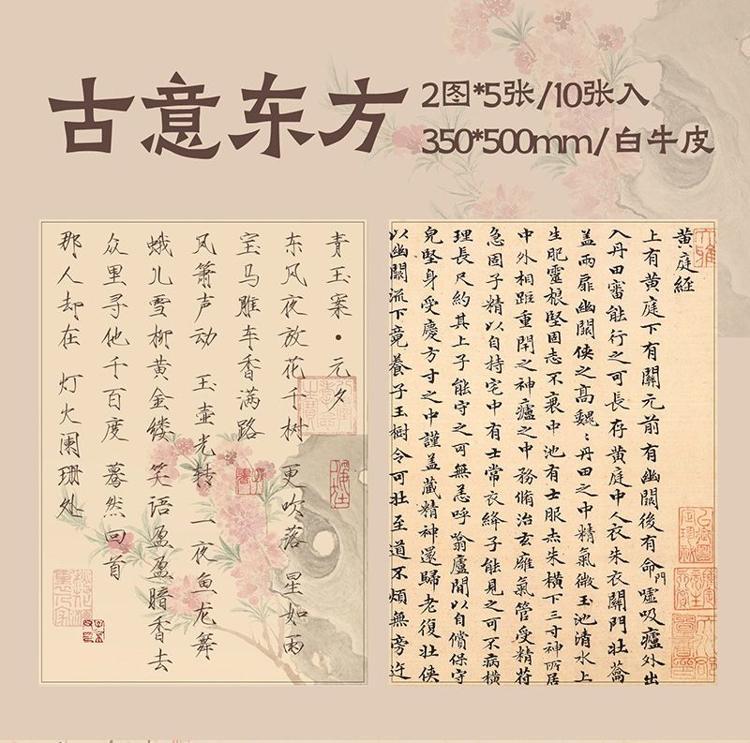 古意东方
2图*5张/10张入
350*500mm/白牛皮
青玉案·元夕
东风夜放花千树 更吹落 星如雨
宝马雕车香满路
风箫声动 玉壶光转 一夜鱼龙舞
蛾儿雪柳黄金缕 笑语盈盈暗香去
众里寻他千百度 蓦然回首
那人却在 灯火阑珊处
黄庭經
上有黄庭下有關元前有幽闕後有命門噓吸廬外出
入丹田審能行之可長存黄庭中人衣朱衣關門壯蘥
盖兩扉幽闕俠之高魏丹田之中精氣微玉池清水上
生肥靈根堅固志不衰中池有士服赤朱横下三寸神所居
中外相距重閉之神廬之中務脩治玄癕氣管受精符
急固子精以自持宅中有士常衣絳子能見之可不病橫
理長尺約其上子能守之可無恙呼翕廬間以自償保守
皃堅身受慶方寸之中謹盖藏精神還歸老復壯俠
以幽闕流下竟養子玉樹令可壯至道不煩無旁迕